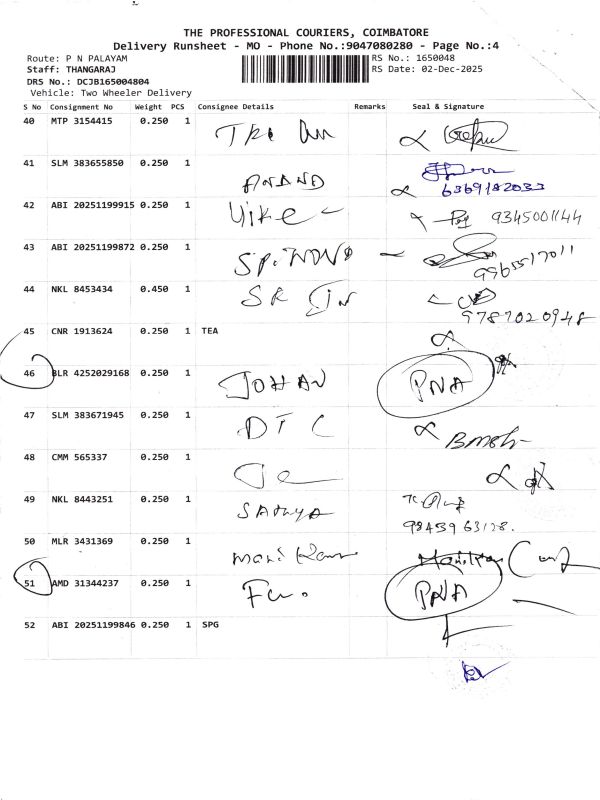 THE PROFESSIONAL COURIERS, COIMBATORE
Delivery Runsheet - MO - Phone No.:9047080280 - Page No.:4
Route: P N PALAYAM
RS No.: 1650048
Staff: THANGARAJ
RS Date: 02-Dec-2025
DRS No.: DCJB165004804
Vehicle: Two Wheeler Delivery
S No Consignment No Weight PCS Consignee Details Remarks Seal & Signature
40 MTP 3154415 0.250 1
41 SLM 383655850 0.250 1
ANAND
6369182033
42 ABI 20251199915 0.250 1
9345001144
43 ABI 20251199872 0.250 1
9965517011
44 NKL 8453434 0.450 1
SR
9787020948
45 CNR 1913624 0.250 1 TEA
46 BLR 4252029168 0.250 1
JOHAN PNA
47 SLM 383671945 0.250 1
DTC
48 CMM 565337 0.250 1
49 NKL 8443251 0.250 1
SATHYA
50 MLR 3431369 0.250 1
51 AMD 31344237 0.250 1
PNA
52 ABI 20251199846 0.250 1 SPG